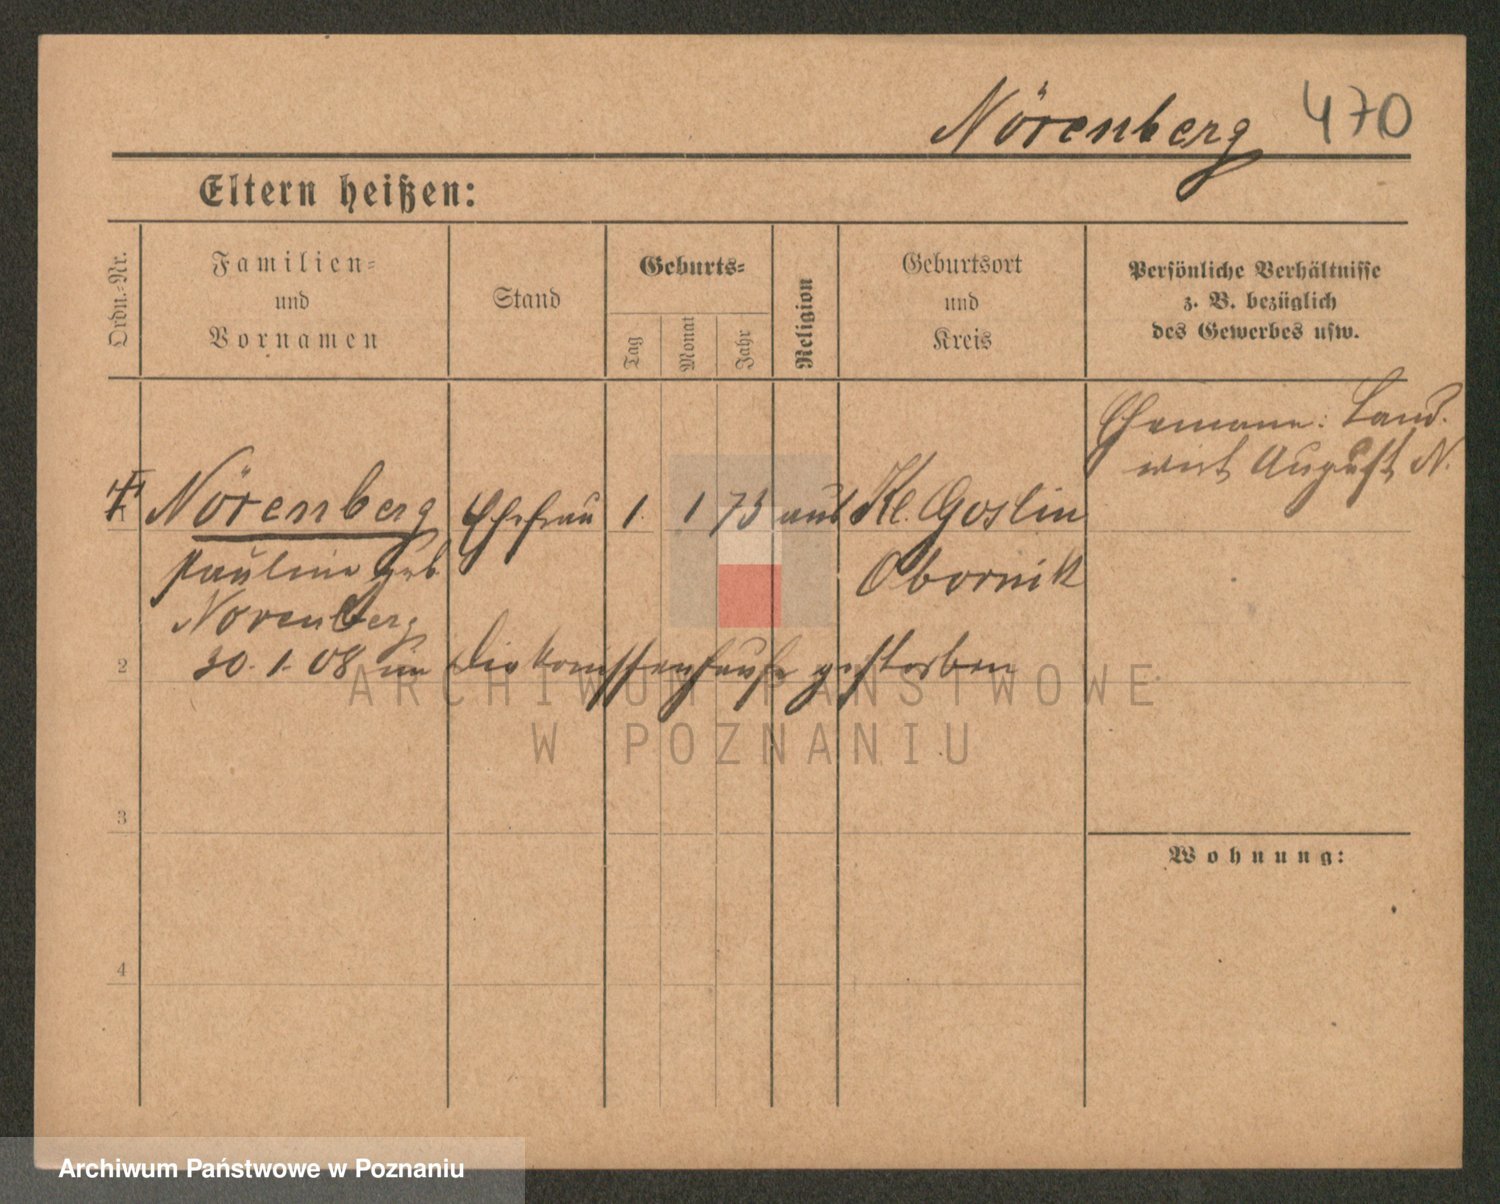 Nörenberg 470
Eltern heißen:
Ordn.-Nr.
Familien-
und
Vornamen
Stand
Geburts-
Tag
Monat
Jahr
Religion
Geburtsort
und
Kreis
Persönliche Verhältnisse
z. B. bezüglich
des Gewerbes usw.
Ehemann: Land-
wirt August N.
1 Nörenberg Ehefrau 1. 1 75 Kl. Goslin
Pauline geb Obornik
Norenberg
2 30. 1. 08 im Diakonissenhause gestorben
3
Wohnung:
4
ARCHIWUM PAŃSTWOWE
W POZNANIU
Archiwum Państwowe w Poznaniu